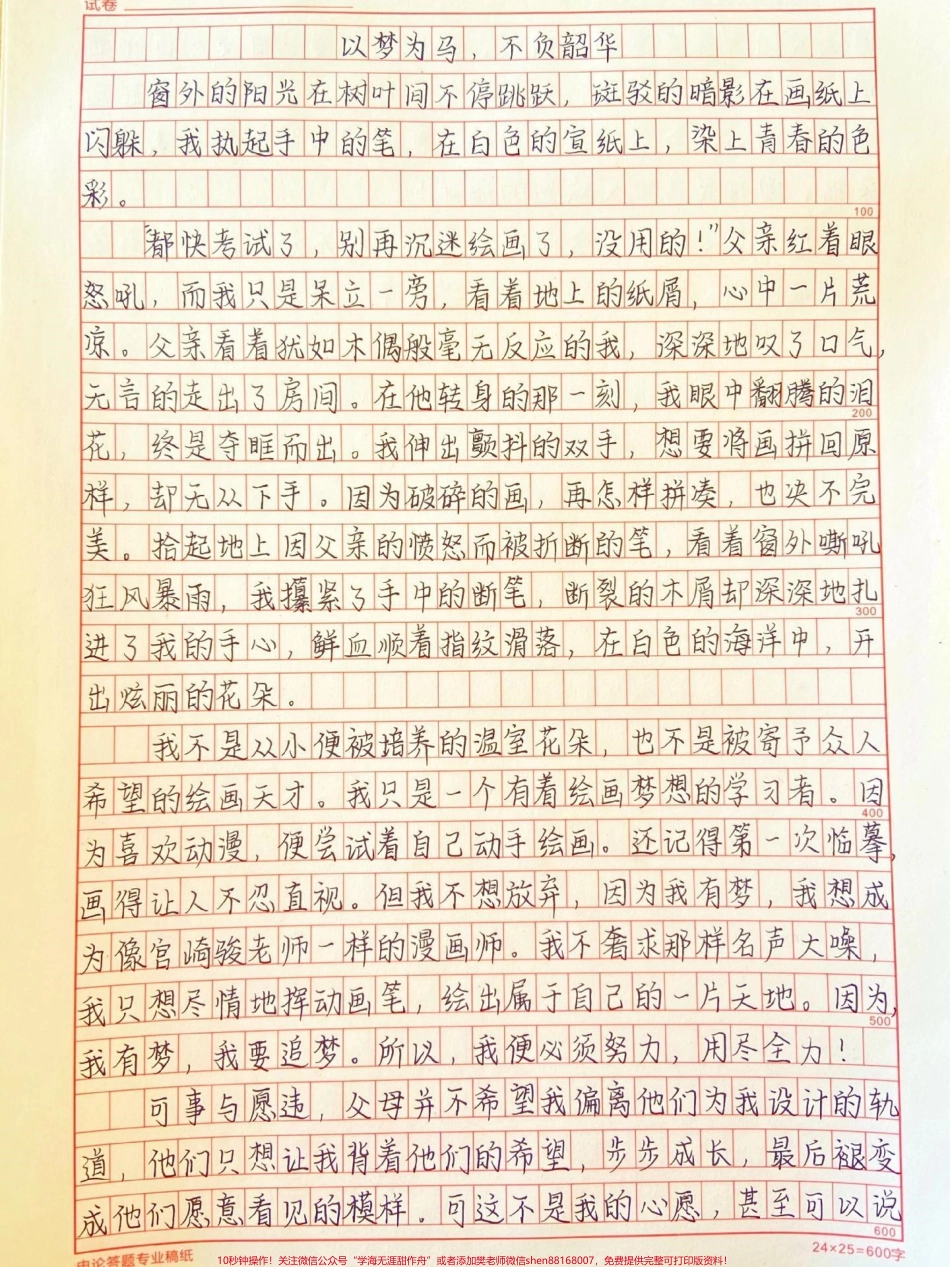 试卷
以梦为马，不负韶华
窗外的阳光在树叶间不停跳跃，斑驳的暗影在画纸上
闪躲，我执起手中的笔，在白色的宣纸上，染上青春的色
彩。
100
“都快考试了，别再沉迷绘画了，没用的！”父亲红着眼
怒吼，而我只是呆立一旁，看着地上的纸屑，心中一片荒
凉。父亲看着犹如木偶般毫无反应的我，深深地叹了口气，
无言的走出了房间。在他转身的那一刻，我眼中翻腾的泪
200
花，终是夺眶而出。我伸出颤抖的双手，想要将画拼回原
样，却无从下手。因为破碎的画，再怎样拼凑，也决不完
美。拾起地上因父亲的愤怒而被折断的笔，看着窗外嘶吼
狂风暴雨，我攥紧了手中的断笔，断裂的木屑却深深地扎
300
进了我的手心，鲜血顺着指纹滑落，在白色的海洋中，开
出炫丽的花朵。
我不是从小便被培养的温室花朵，也不是被寄予众人
希望的绘画天才。我只是一个有着绘画梦想的学习者。因
400
为喜欢动漫，便尝试着自己动手绘画。还记得第一次临摹，
画得让人不忍直视。但我不想放弃，因为我有梦，我想成
为像宫崎骏老师一样的漫画师。我不奢求那样名声大噪，
我只想尽情地挥动画笔，绘出属于自己的一片天地。因为，
500
我有梦，我要追梦。所以，我便必须努力，用尽全力！
可事与愿违，父母并不希望我偏离他们为我设计的轨
道，他们只想让我背着他们的希望，步步成长，最后褪变
成他们愿意看见的模样。可这不是我的心愿，甚至可以说
600
申论答题专业稿纸
24×25=600字
10秒钟操作！关注微信公众号“学海无涯甜作舟”或者添加樊老师微信shen88168007，免费提供完整可打印版资料！